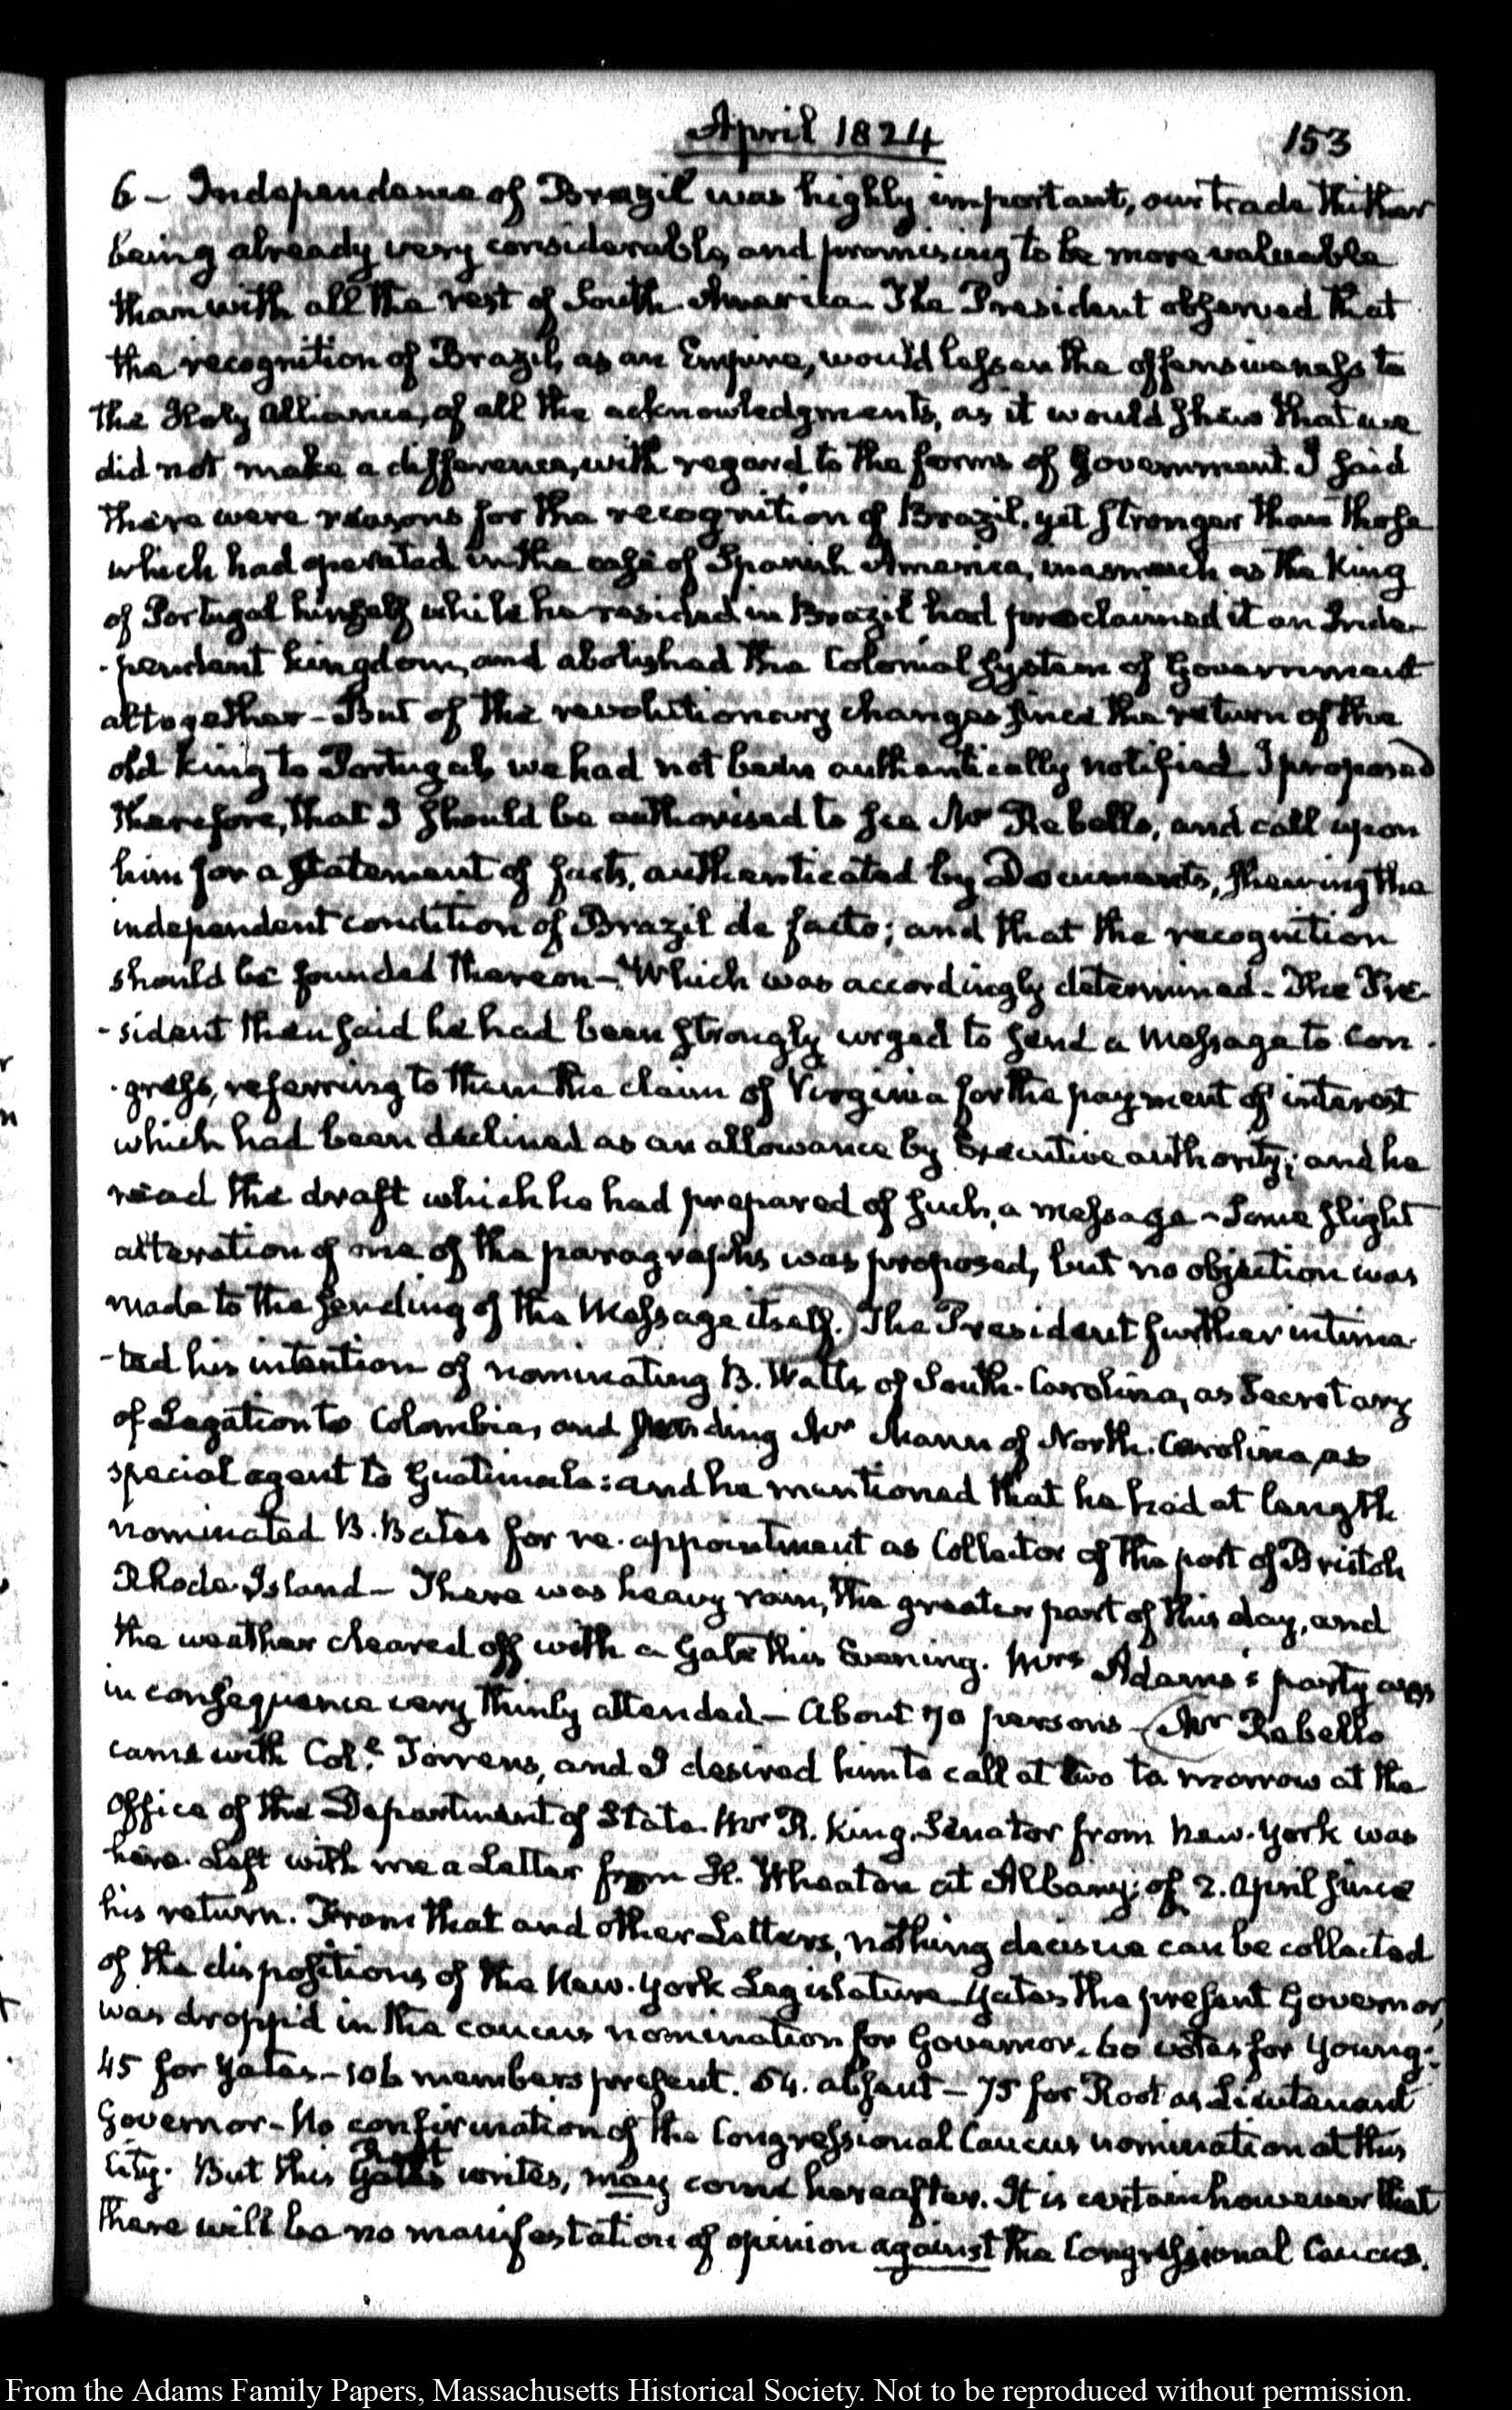 April 1824
153
6 – Independence of Brazil was highly important, our trade thither
being already very considerable, and promising to be more valuable
than with all the rest of South America – The President observed that
the recognition of Brazil, as an Empire, would lessen the offensiveness to
the Holy Alliance, of all the acknowledgments, as it would shew that we
did not make a difference, with regard to the forms of Government. I said
there were reasons for the recognition of Brazil, yet stronger than those
which had operated in the case of Spanish America, inasmuch as the King
of Portugal himself while he resided in Brazil had proclaimed it an Inde-
-pendent kingdom, and abolished the Colonial System of Government
altogether – But of the revolutionary changes since the return of the
old king to Portugal, we had not been authentically notified. I proposed
therefore, that I should be authorised to see Mr Rebello, and call upon
him for a statement of facts, authenticated by Documents, shewing the
independent condition of Brazil de facto; and that the recognition
should be founded thereon – Which was accordingly determined – The Pre-
-sident then said he had been strongly urged to send a Message to Con-
-gress, referring to them the claim of Virginia for the payment of interest
which had been declined as an allowance by Executive authority; and he
read the draft which he had prepared of such, a message – Some slight
alteration of one of the paragraphs was proposed, but no objection was
made to the sending of the Message itself.) The President further intima-
-ted his intention of nominating B. Watts of South-Carolina, as Secretary
of Legation to Colombia, and sending Mr Mann of North-Carolina, as
special agent to Guatimala: and he mentioned that he had at length
nominated B. Bates for re-appointment as Collector of the port of Bristol,
Rhode-Island – There was heavy rain, the greater part of this day, and
the weather cleared off with a Gale this Evening. Mrs Adams's party was
in consequence very thinly attended – About 70 persons – (Mr Rebello
came with Col.e Torrens, and I desired him to call at two to morrow at the
Office of the Department of State. Mr R. King, Senator from New-York was
here. Left with me a Letter from H. Wheaton at Albany; of 2. April since
his return. From that and other Letters, nothing decisive can be collected
of the dispositions of the New-York Legislature – Yates the present Governor,
was dropp'd in the caucus nomination for Governor. 60 votes for Young:
45 for Yates – 106 members present. 54. absent – 75 for Root as Lieutenant
Governor – No confirmation of the Congressional Caucus nomination at this
Root
City. But this Yates writes, may come hereafter. It is certain however that
there will be no manifestation of opinion against the Congressional Caucus.
From the Adams Family Papers, Massachusetts Historical Society. Not to be reproduced without permission.